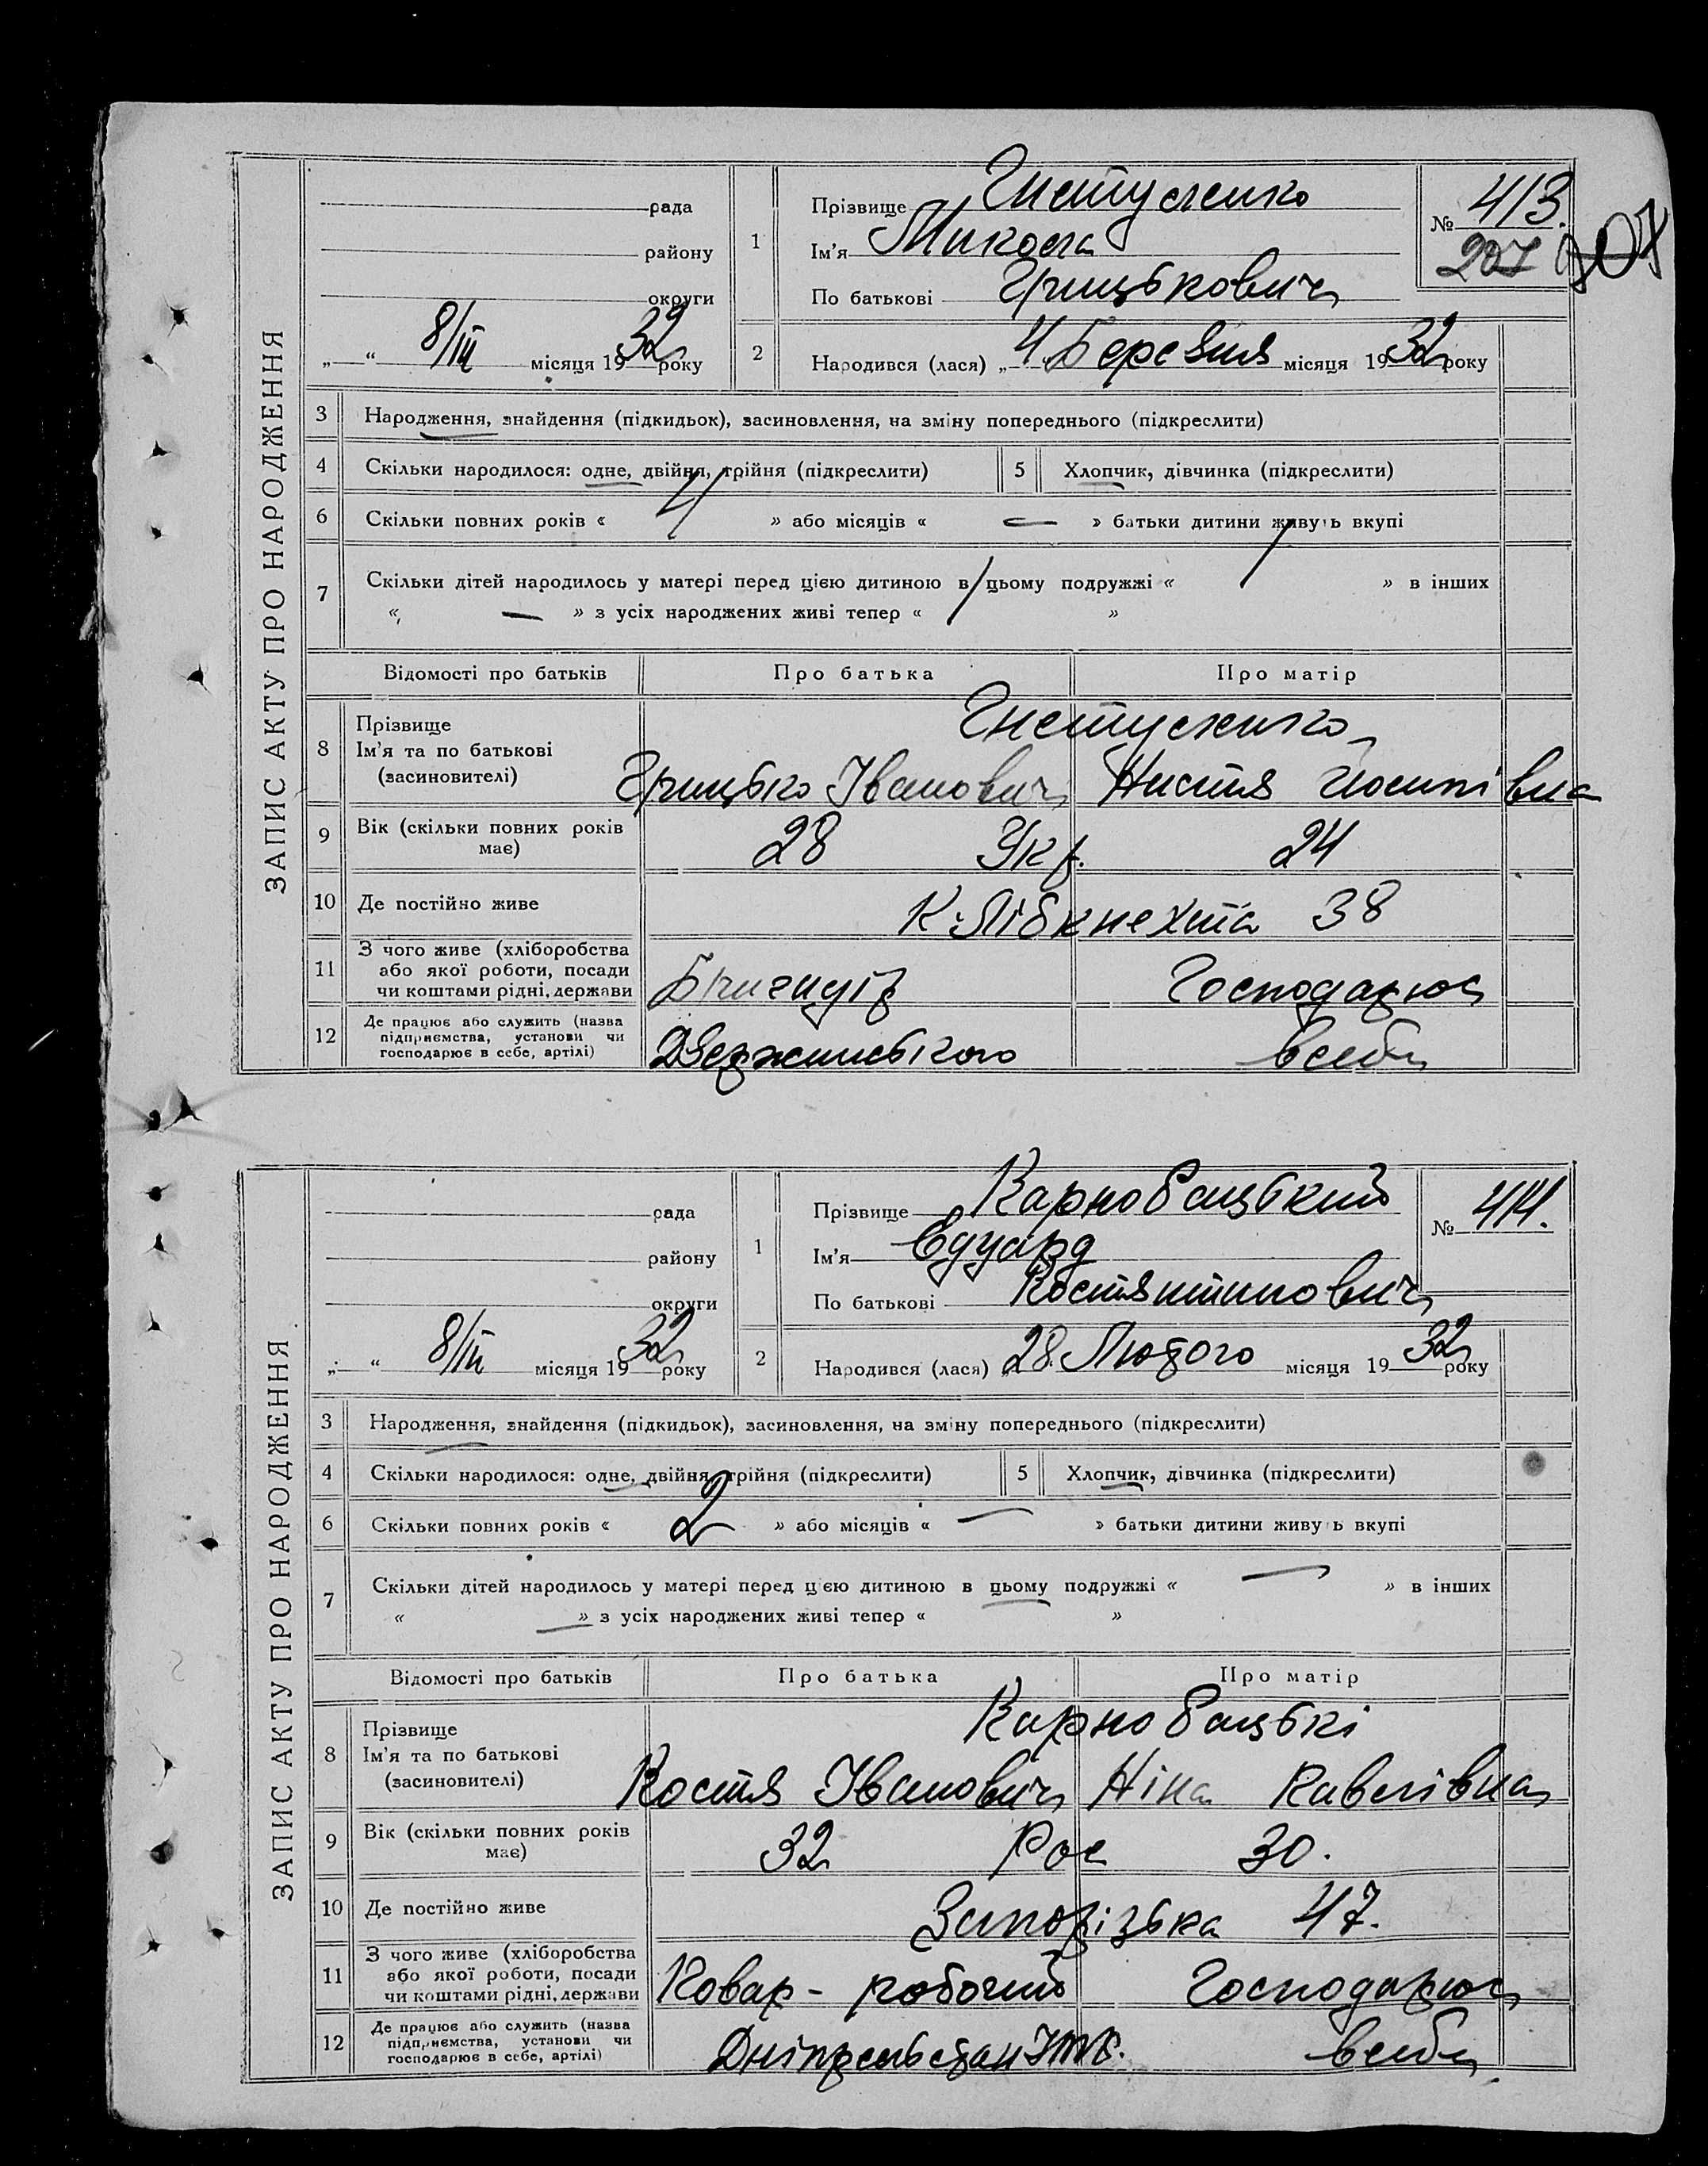 ЗАПИС АКТУ ПРО НАРОДЖЕННЯ
рада
району
округи
„ “ 8/III місяця 1932 року
1 Прізвище Гнетусленко
Ім'я Микола
По батькові Грицькович
№ 413.
207 207
2 Народився (лася) „ 4. Березня місяця 1932 року
3 Народження, знайдення (підкидьок), засиновлення, на зміну попереднього (підкреслити)
4 Скільки народилося: одне, двійня, трійня (підкреслити) 5 Хлопчик, дівчинка (підкреслити)
6 Скільки повних років « 4 » або місяців « — » батьки дитини живуть вкупі
7 Скільки дітей народилось у матері перед цією дитиною в цьому подружжі « 1 » в інших
« — » з усіх народжених живі тепер « 1 »
Відомості про батьків Про батька Про матір
8 Прізвище
Ім'я та по батькові
(засиновителі)
Грицько Іванович Настя Йосипівна
9 Вік (скільки повних років має) 28 Укр. 24
10 Де постійно живе К. Лібкнехта 38
11 З чого живе (хліборобства або якої роботи, посади чи коштами рідні, держави Бригадір Господарює
12 Де працює або служить (назва підприємства, установи чи господарює в себе, артілі) Дзержинського в себе
ЗАПИС АКТУ ПРО НАРОДЖЕННЯ
рада
району
округи
„ “ 8/III місяця 1932 року
1 Прізвище Карнобацький
Ім'я Едуард
По батькові Костянтинович
№ 414.
2 Народився (лася) „ 28. Лютого місяця 1932 року
3 Народження, знайдення (підкидьок), засиновлення, на зміну попереднього (підкреслити)
4 Скільки народилося: одне, двійня, трійня (підкреслити) 5 Хлопчик, дівчинка (підкреслити)
6 Скільки повних років « 2 » або місяців « — » батьки дитини живуть вкупі
7 Скільки дітей народилось у матері перед цією дитиною в цьому подружжі « — » в інших
« — » з усіх народжених живі тепер « »
Відомості про батьків Про батька Про матір
8 Прізвище
Ім'я та по батькові
(засиновителі)
Карнобацькі
Костя Іванович Ніна Павлівна
9 Вік (скільки повних років має) 32 Рос 30.
10 Де постійно живе Запорізька 47.
11 З чого живе (хліборобства або якої роботи, посади чи коштами рідні, держави Ковар - робочий Господарює
12 Де працює або служить (назва підприємства, установи чи господарює в себе, артілі) в себе